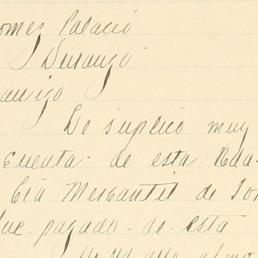 omez Palacio
Durango
amigo
Lo suplico muy
cuenta de esta Rda.
Cía Mercantil de Tor
pagado de esta